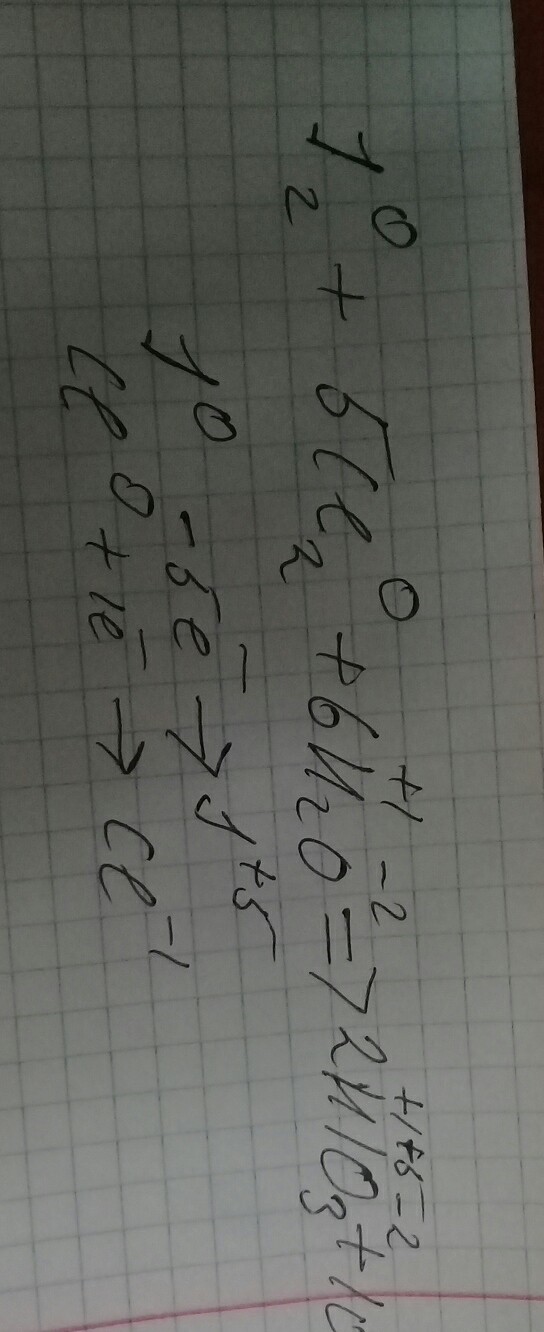 J₂⁰ + 5Cl₂⁰ + 6H₂⁺¹O⁻² => 2H⁺¹I⁺⁵O₃⁻² + 10
J⁰ - 5e⁻ → J⁺⁵
Cl⁰ + 1e⁻ → Cl⁻¹